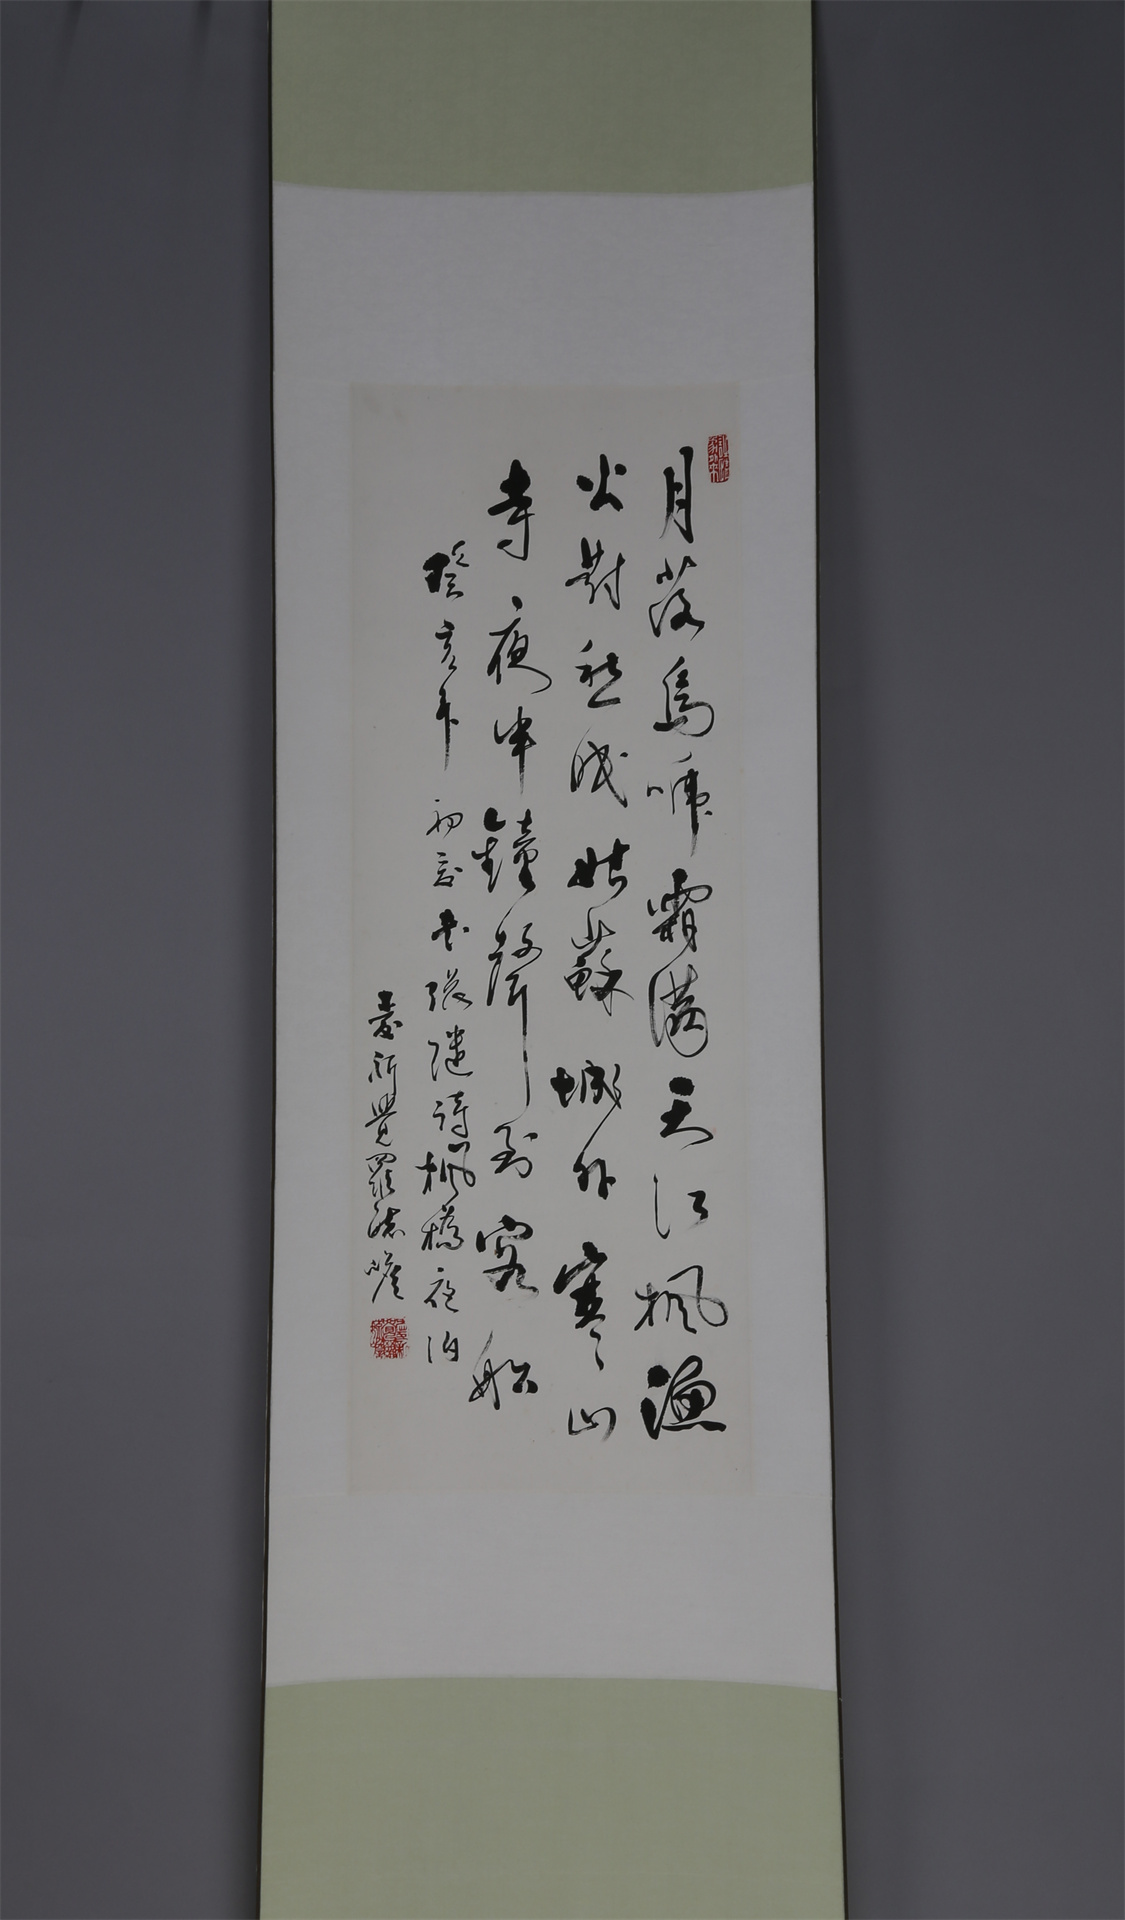 月落烏啼霜滿天江楓漁
火對愁眠姑蘇城外寒山
寺夜半鐘聲到客船
癸亥年初書張繼詩楓橋夜泊
愛新覺羅